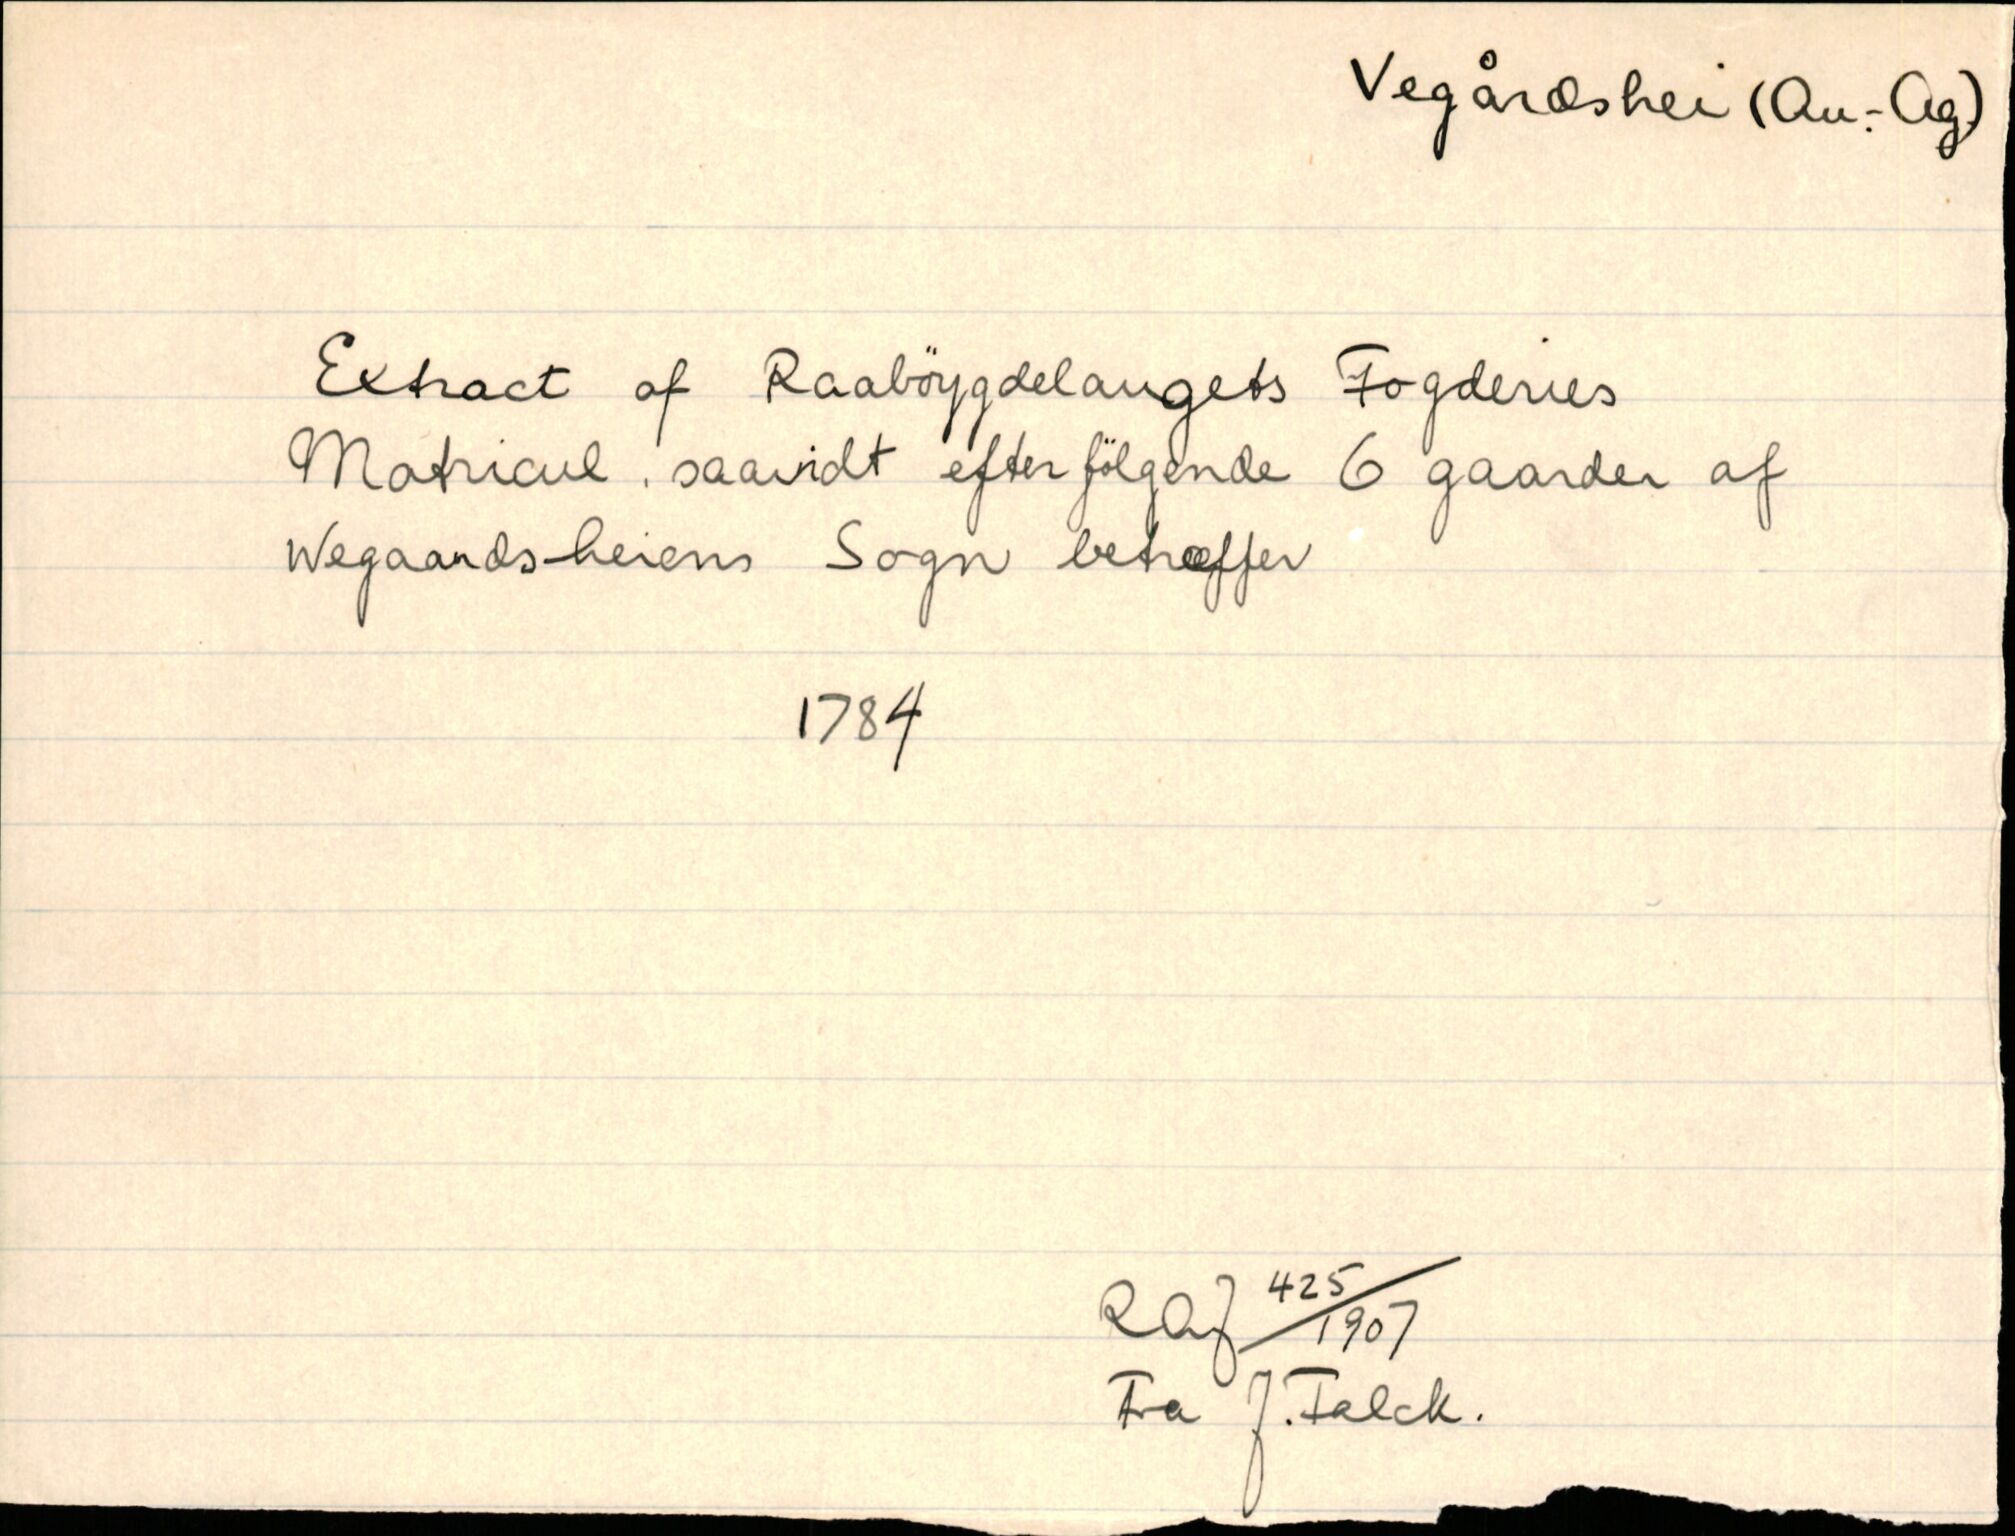 Vegårdshei (Au.-Ag)
Extract af Raaböygdelaugets Fogderies
Matricul. saavidt efterfölgende 6 gaarder af
Wegaardsheiens Sogn betræffer
1784
RAJ 425/1907
Fra J. Falck.